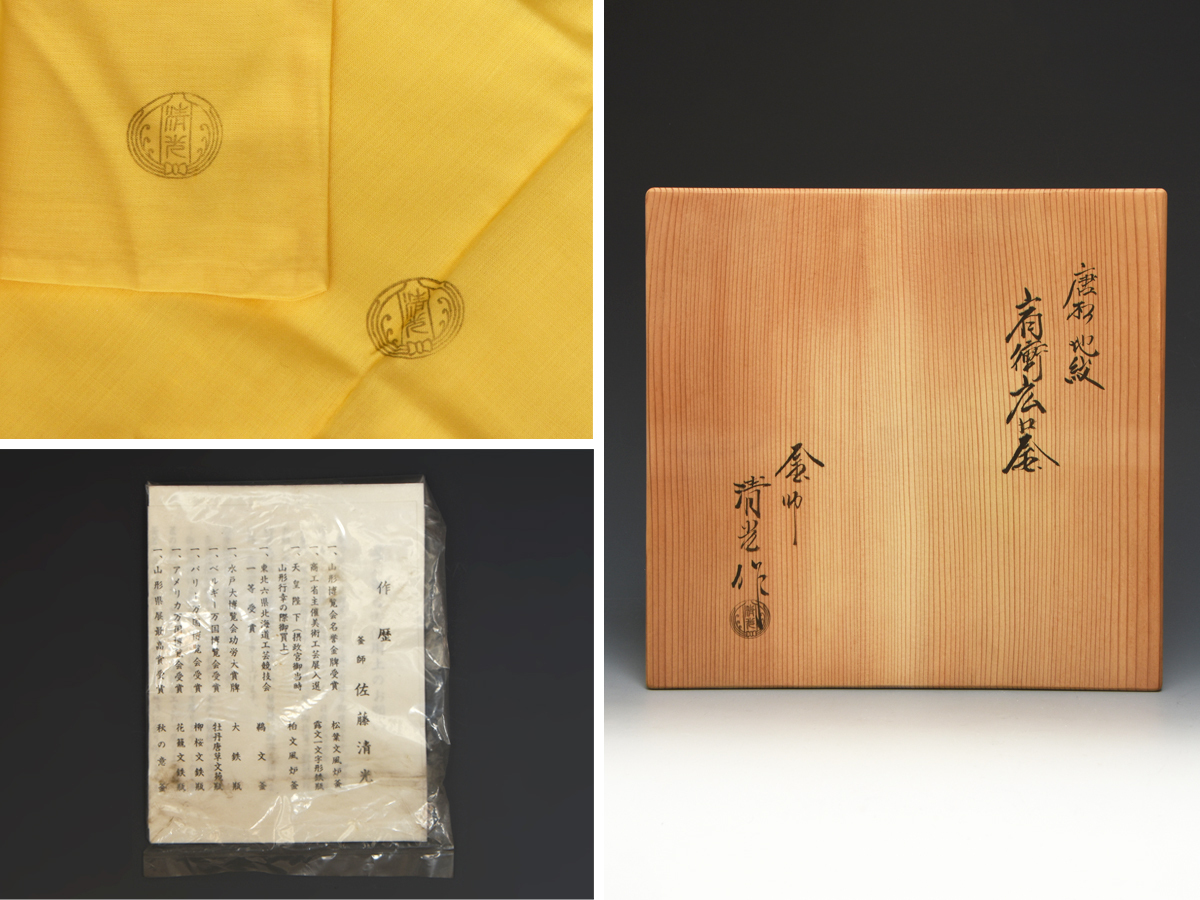 清光
清光
作歴
釜師 佐藤清光
一、山形博覧会名誉金牌受賞 松葉文風炉釜
一、商工省主催美術工芸展入選 霰文一文字形鉄瓶
一、天皇陛下(摂政宮御当時
山形行幸の際御買上) 柏文風炉釜
一、東北六県北海道工芸競技会
一等受賞 鶴文釜
一、水戸大博覧会功労大賞牌 大鉄瓶
一、ベルギー万国博覧会受賞 牡丹唐草文鉄瓶
一、パリー万国博覧会受賞 柳桜文鉄瓶
一、アメリカ万国博覧会受賞 花籠文鉄瓶
一、山形県展最高賞受賞 秋の意釜
唐松地紋
肩衝広口釜
釜師
清光作
清光